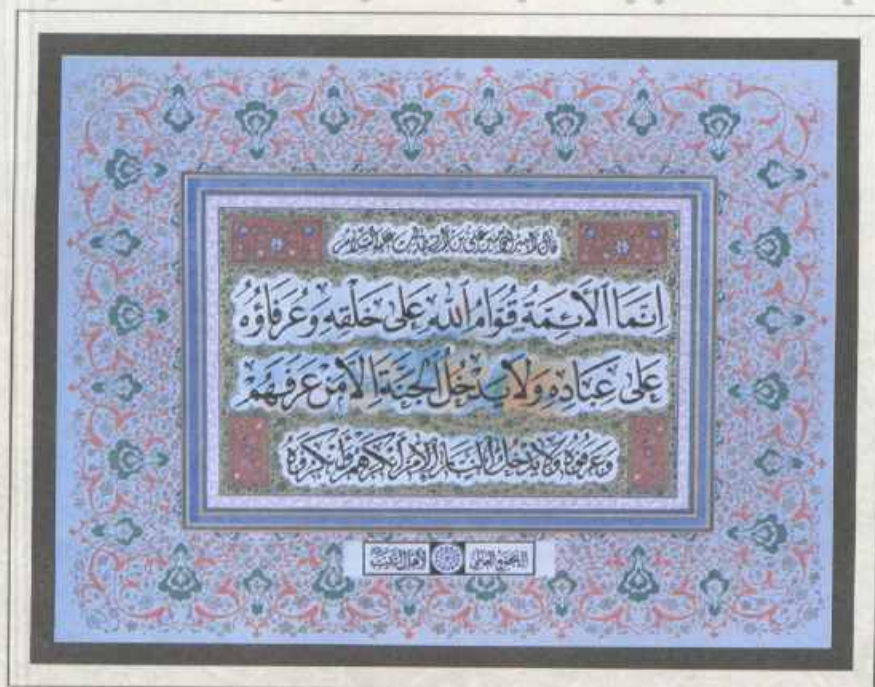 قال أمير المؤمنين علي بن أبي طالب عليه السلام
إِنَّمَا الْأَئِمَّةُ قُوَّامُ اللهِ عَلَى خَلْقِهِ وَعُرَفَاؤُهُ
عَلَى عِبَادِهِ وَلَا يَدْخُلُ الْجَنَّةَ إِلَّا مَنْ عَرَفَهُمْ
وَعَرَفُوهُ وَلَا يَدْخُلُ النَّارَ إِلَّا مَنْ أَنْكَرَهُمْ وَأَنْكَرُوهُ
المجمع العالمي لأهل البيت